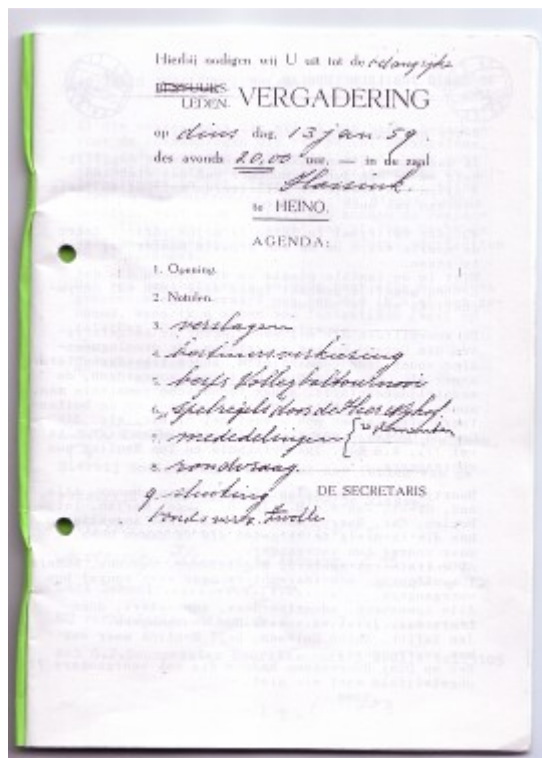 Hierbij nodigen wij U uit tot de belangrijke
BESTUURS-
LEDEN- VERGADERING
op dins dag, 13 jan. 59
des avonds 20,00 uur, — in de zaal
te HEINO.
AGENDA:
1. Opening.
2. Notulen.
3. verslagen
4. bestuursverkiesing
5. Volleybaltournooi
6. spelregels door de Heer
7. mededelingen
8. rondvraag
9. sluiting DE SECRETARIS
Zwolle